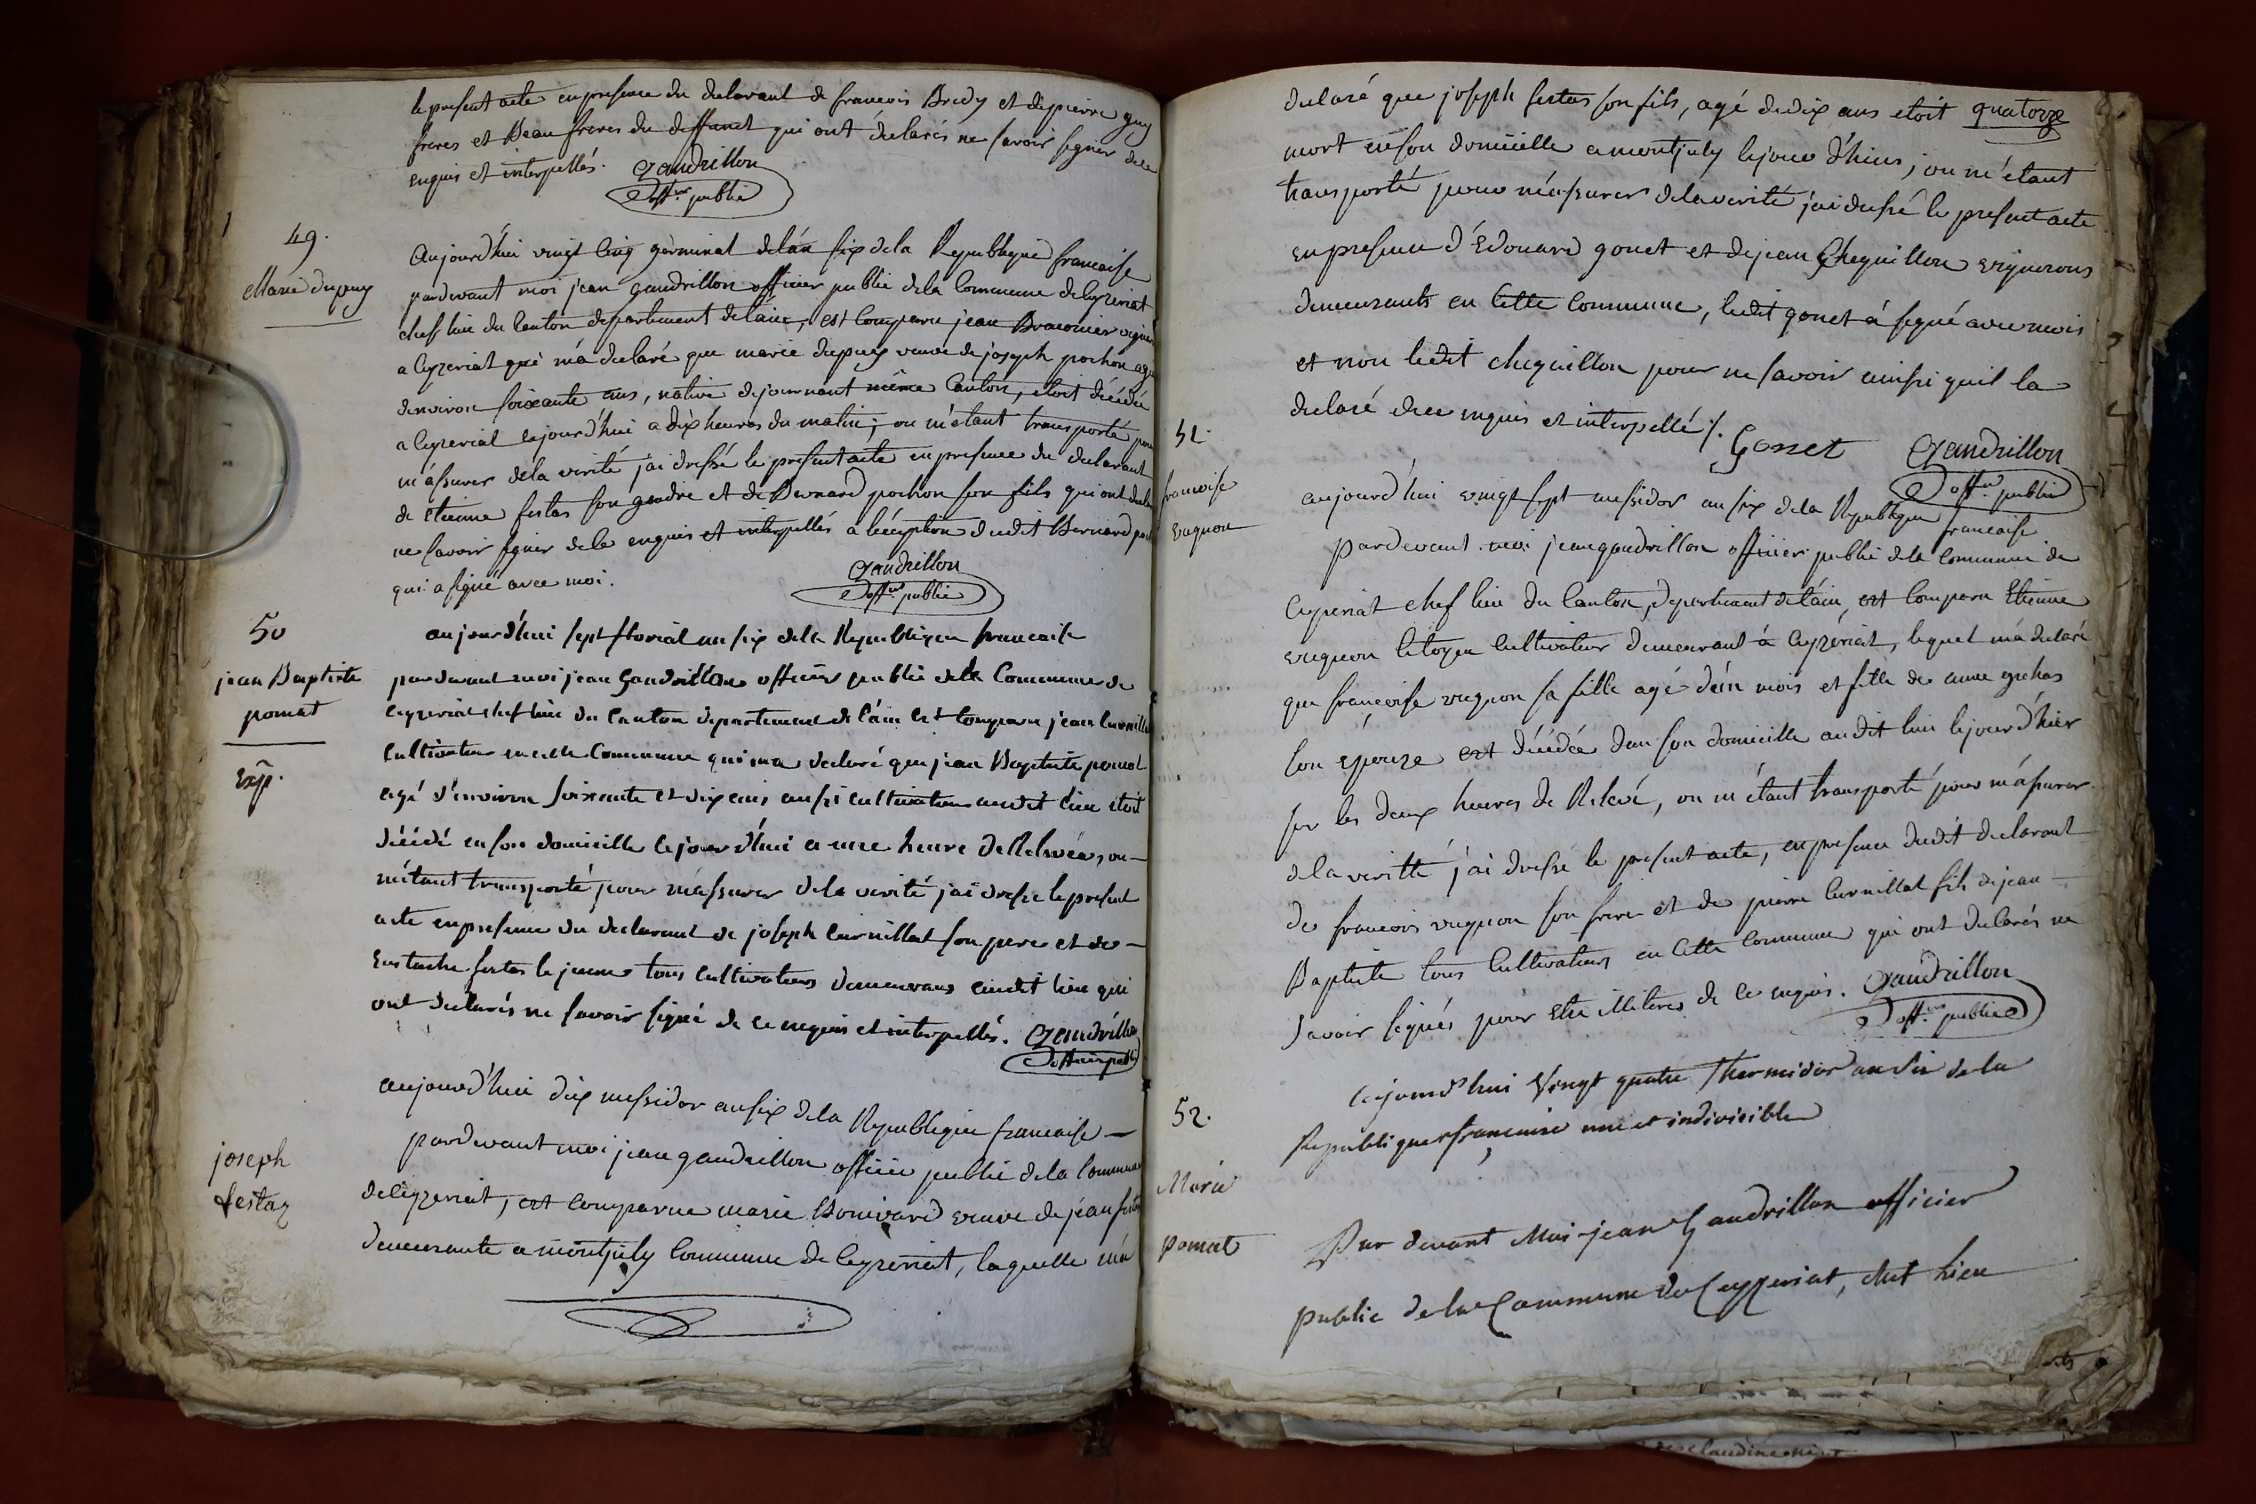 le present acte en presence du declarant de francois Bredy et de pierre guy
freres et Beau freres du deffunct qui ont déclarés ne savoir signer de ce
enquis et interpellés. Gaudrillon
off.er public
49.
Marie dupuy
Aujourd'hui vingt Cinq germinal de l'an six de la Republique francaise
pardevant moi jean gaudrillon officier public de la Commune de Ceyzeriat
chef lieu du Canton departement de l'ain, est Comparu jean Braconier vigne
a Ceyzeriat qui m'a declaré que marie dupuy veuve de joseph pochon agé
denviron soixante ans, native de journant même Canton, etoit décédée
a Ceyzeriat cejourd'hui a dix heures du matin; ou m'etant transporté pour
m'assurer de la verité j'ai dressé le present acte en presence du declarant
de etienne festas son gendre et de Bernard pochon son fils qui ont decla
ne savoir signer de ce enquis et interpellés a l'exception dudit Bernard poch
qui a signé avec moi. Gaudrillon
off.er public
50
jean Baptiste
pomat
Exp.
aujourd'hui sept floreal an six de la Republique francaise
pardevant moi jean Gaudrillon officier public de la Commune de
Ceyzeriat chef lieu du Canton departement de l'ain est Comparu jean Curnilla
Cultivateur en cette Commune qui m'a declaré que jean Baptiste pomat
agé d'environ soixante et dix ans aussi cultivateur audit lieu etoit
décédé en son domicille cejourd'hui a une heure de Relevée, ou
m'étant transporté pour m'assurer de la verité j'ai dressé le present
acte en presence du declarant de joseph Curnillat son pere et de
Eustache festas le jeune tous Cultivateurs demeurans audit lieu qui
ont declarés ne savoir signé de ce enquis et interpellés. Gaudrillon
officier public
joseph
festaz
aujourd'hui dix messidor an six de la Republique francaise
pardevant moi jean gaudrillon officier public de la Commune
de Ceyzeriat, est Comparue marie Bonivard veuve de jean festas
demeurante a montjuly Commune de Ceyzeriat, laquelle m'a
declaré que joseph festas son fils, agé de dix ans etoit quatorze
mort en son domicille a montjuly le jour d'hier, ou m'étant
transporté pour m'assurer de la verité j'ai dressé le present acte
en presence d'Edouard gonet et de jean Chequillon vignerons
demeurants en Cette Commune, ledit gonet à signé avec moi
et non ledit chequillon pour ne savoir ainsi quil la
declaré de ce enquis et interpellé /. Gonet Gaudrillon
off.er public
51.
francoise
vugnon
aujourd'hui vingt sept messidor an six de la Republique francaise
pardevant moi jean gaudrillon officier public de la Commune de
Ceyzeriat chef lieu du Canton, departement de l'ain, est Comparu Etienne
vugnon Citoyen Cultivateur demeurant à Ceyzériat, lequel m'a declaré
que francoise vugnon sa fille agé d'un mois et fille de anne grehas
son épouze est décédée dans son domicille audit lieu le jour d'hier
sur les deux heures de Relevé, ou m'étant transporté pour m'assurer
de la veritté j'ai dressé le present acte, en presence dudit declarant
de francois vugnon son frere et de pierre Curnillat fils de jean
Baptiste tous Cultivateurs en Cette Commune qui ont declarés ne
savoir signés pour etre illiteres de ce enquis. Gaudrillon
off.er public
52.
Marie
pomat
Cejourd'hui Vingt quatre Thermidor an six de la
Republique francaise une et indivisible
Par devant Moi jean Gaudrillon officier
public de la Commune de Ceyzeriat, chef lieu